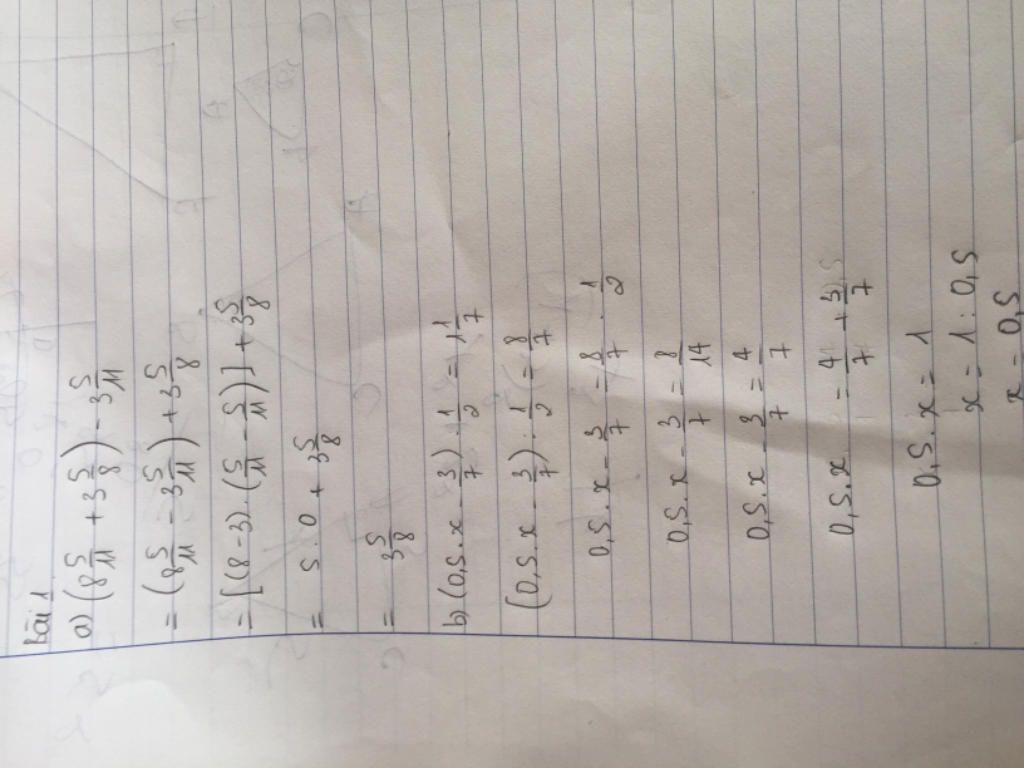 Bài 1:
a) (8 5/11 + 3 5/8) - 3 5/11
= (8 5/11 - 3 5/11) + 3 5/8
= [(8-3) . (5/11 - 5/11)] + 3 5/8
= 5 . 0 + 3 5/8
= 3 5/8
b) (0,5.x - 3/7) : 1/2 = 1 1/7
(0,5.x - 3/7) : 1/2 = 8/7
0,5.x - 3/7 = 8/7 . 1/2
0,5.x - 3/7 = 8/14
0,5.x - 3/7 = 4/7
0,5.x = 4/7 + 3/7
0,5.x = 1
x = 1 : 0,5
x = 0,5